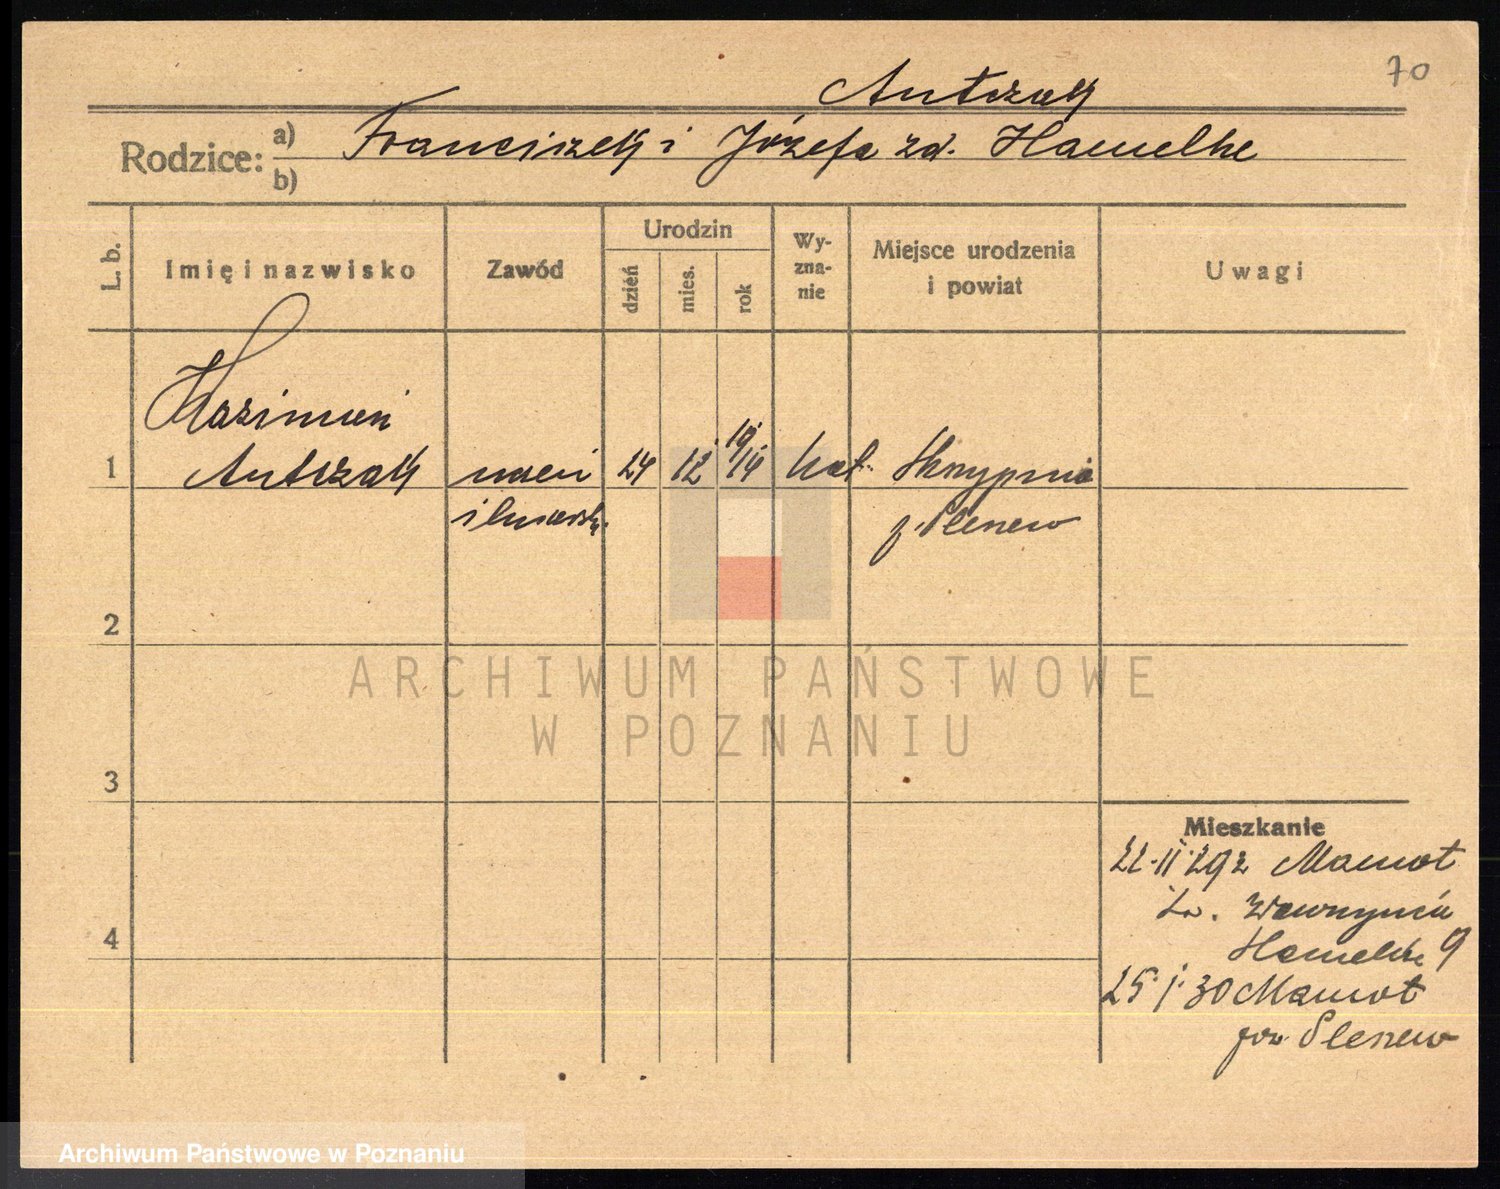 70
Antczak
Rodzice: a) Franciszek i Józefa zd. Hamelke
b)
L. b.
Imię i nazwisko
Zawód
Urodzin
dzień
mies.
rok
Wy-
zna-
nie
Miejsce urodzenia
i powiat
Uwagi
Kazimierz
1 Antczak uczeń 24 12 19/14 kat. Skrypnia
ślusarski p. Pleszew
2
ARCHIWUM PAŃSTWOWE
W POZNANIU
3
Mieszkanie
22.II.29 z Mamot
Wawrzynia
4
Hamelke 9
25.1.30 Mamot
pow. Pleszew
Archiwum Państwowe w Poznaniu